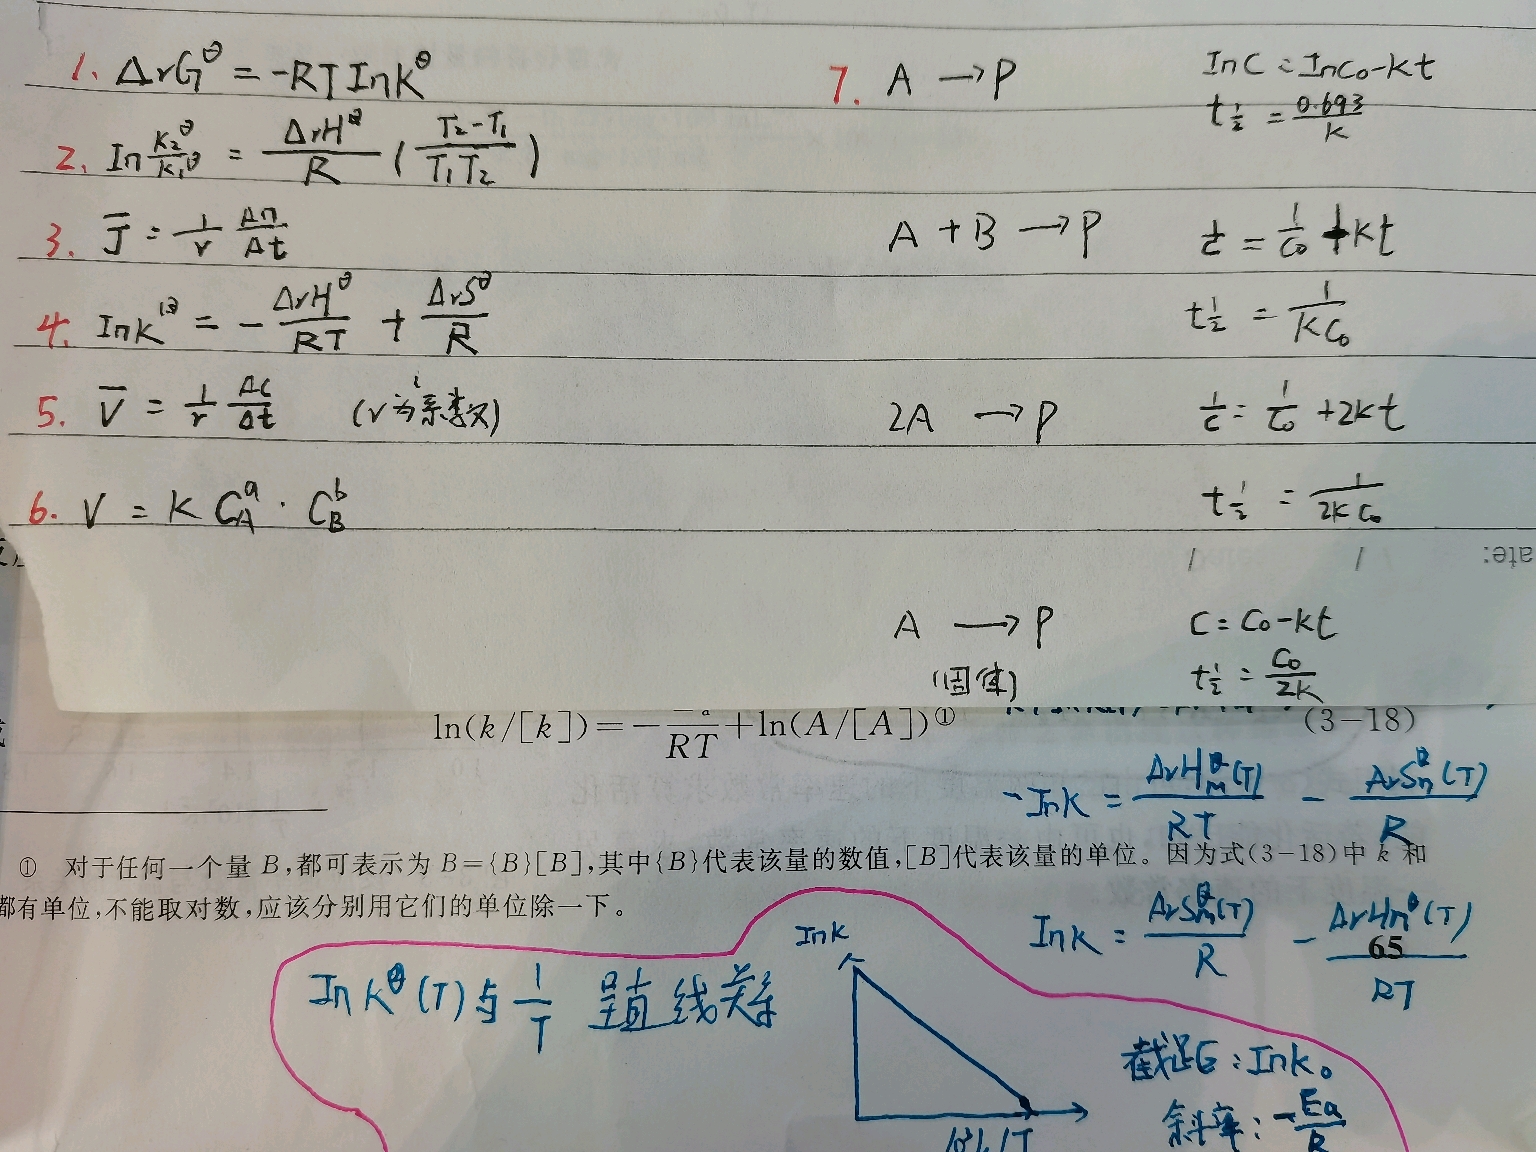 1. ΔrG^θ = -RT lnK^θ
2. ln K₂^θ/K₁^θ = ΔrH^θ/R ( T₂-T₁/T₁T₂ )
3. J̄ = 1/r Δn/Δt
4. lnK^θ = - ΔrH^θ/RT + ΔrS^θ/R
5. V̄ = 1/r Δc/Δt (r为系数)
6. V = K C_A^a · C_B^b
7. A → P lnC = lnC₀-Kt
t½ = 0.693/K
A + B → P 1/c = 1/c₀ + kt
t½ = 1/KC₀
2A → P 1/c = 1/c₀ +2kt
t½ = 1/2KC₀
A → P C = C₀-kt
(固体) t½ = C₀/2K
ln(k/[k])=- /RT +ln(A/[A])① (3-18)
-lnK = ΔrHm^θ(T)/RT - ΔrSm^θ(T)/R
① 对于任何一个量 B,都可表示为 B={B}[B],其中{B}代表该量的数值,[B]代表该量的单位。因为式(3-18)中 k 和
都有单位,不能取对数,应该分别用它们的单位除一下。
lnk = ΔrSm^θ(T)/R - ΔrHm^θ(T)/RT
65
lnk
lnK^θ(T)与 1/T 呈直线关系
截距:lnk₀
斜率:-Ea/R